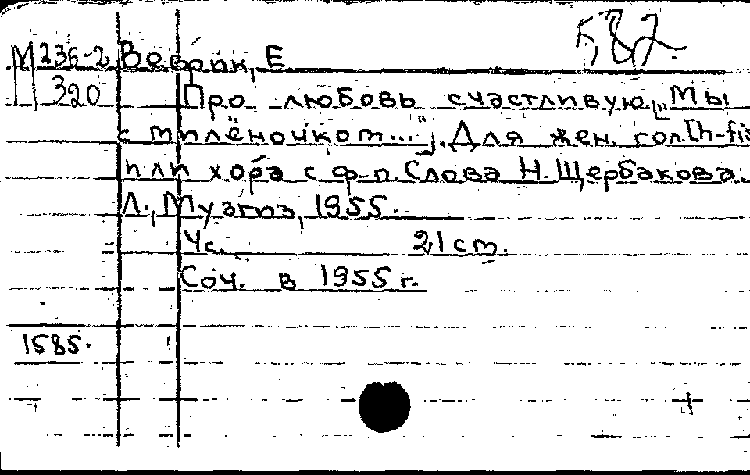 582.
М 236-2 Веврик, Е.
320 Про любовь счастливую „Мы
с милёночком..."]. Для жен. гол. [h-fis
или хора с ф-п. Слова Н. Щербакова.
Л., Музгиз, 1955.
4с. 21 см.
Соч. в 1955 г.
1585.